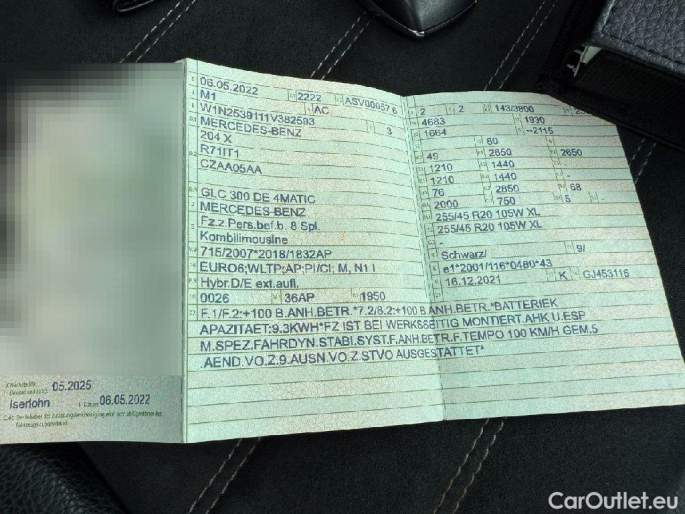 05.2025
Iserlohn 06.05.2022
06.05.2022 2222 ASV00057 6
M1 AC
W1N2539111V382593 3
MERCEDES-BENZ
204 X
R71IT1
CZAA05AA
GLC 300 DE 4MATIC
MERCEDES-BENZ
Fz.z.Pers.bef.b. 8 Spl.
Kombilimousine
715/2007*2018/1832AP
EURO6;WLTP;AP;PI/CI; M, N1 I
Hybr.D/E ext.aufl.
0026 36AP 1950
2 2 143/3800
4683 1930
1664 --2115
80
49 2650 2650
1210 1440 -
1210 1440 -
76 2850 68
2000 750 5 -
255/45 R20 105W XL
255/45 R20 105W XL
-
Schwarz/ 9/
e1*2001/116*0480*43
16.12.2021 K GJ453115
F.1/F.2:+100 B.ANH.BETR.*7.2/8.2:+100 B.ANH.BETR.*BATTERIEK
APAZITAET:9.3KWH*FZ IST BEI WERKSSEITIG MONTIERT.AHK U.ESP
M.SPEZ.FAHRDYN.STABI.SYST.F.ANH.BETR.F.TEMPO 100 KM/H GEM.5
.AEND.VO.Z.9.AUSN.VO.Z.STVO AUSGESTATTET*
CarOutlet.eu